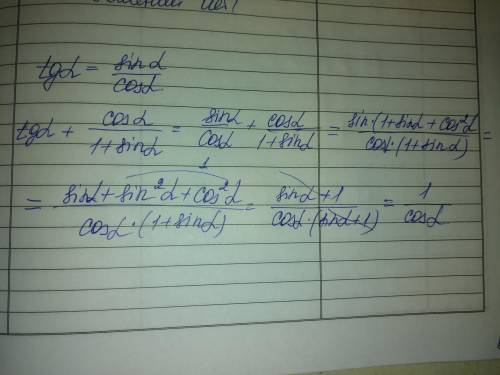 tgα = sinα/cosα
tgα + cosα/(1+sinα) = sinα/cosα + cosα/(1+sinα) = (sin·(1+sinα + cos²α)/(cos·(1+sinα) =
1
= (sinα + sin²α + cos²α)/(cosα·(1+sinα)) = (sinα+1)/(cosα·(sinα+1)) = 1/cosα